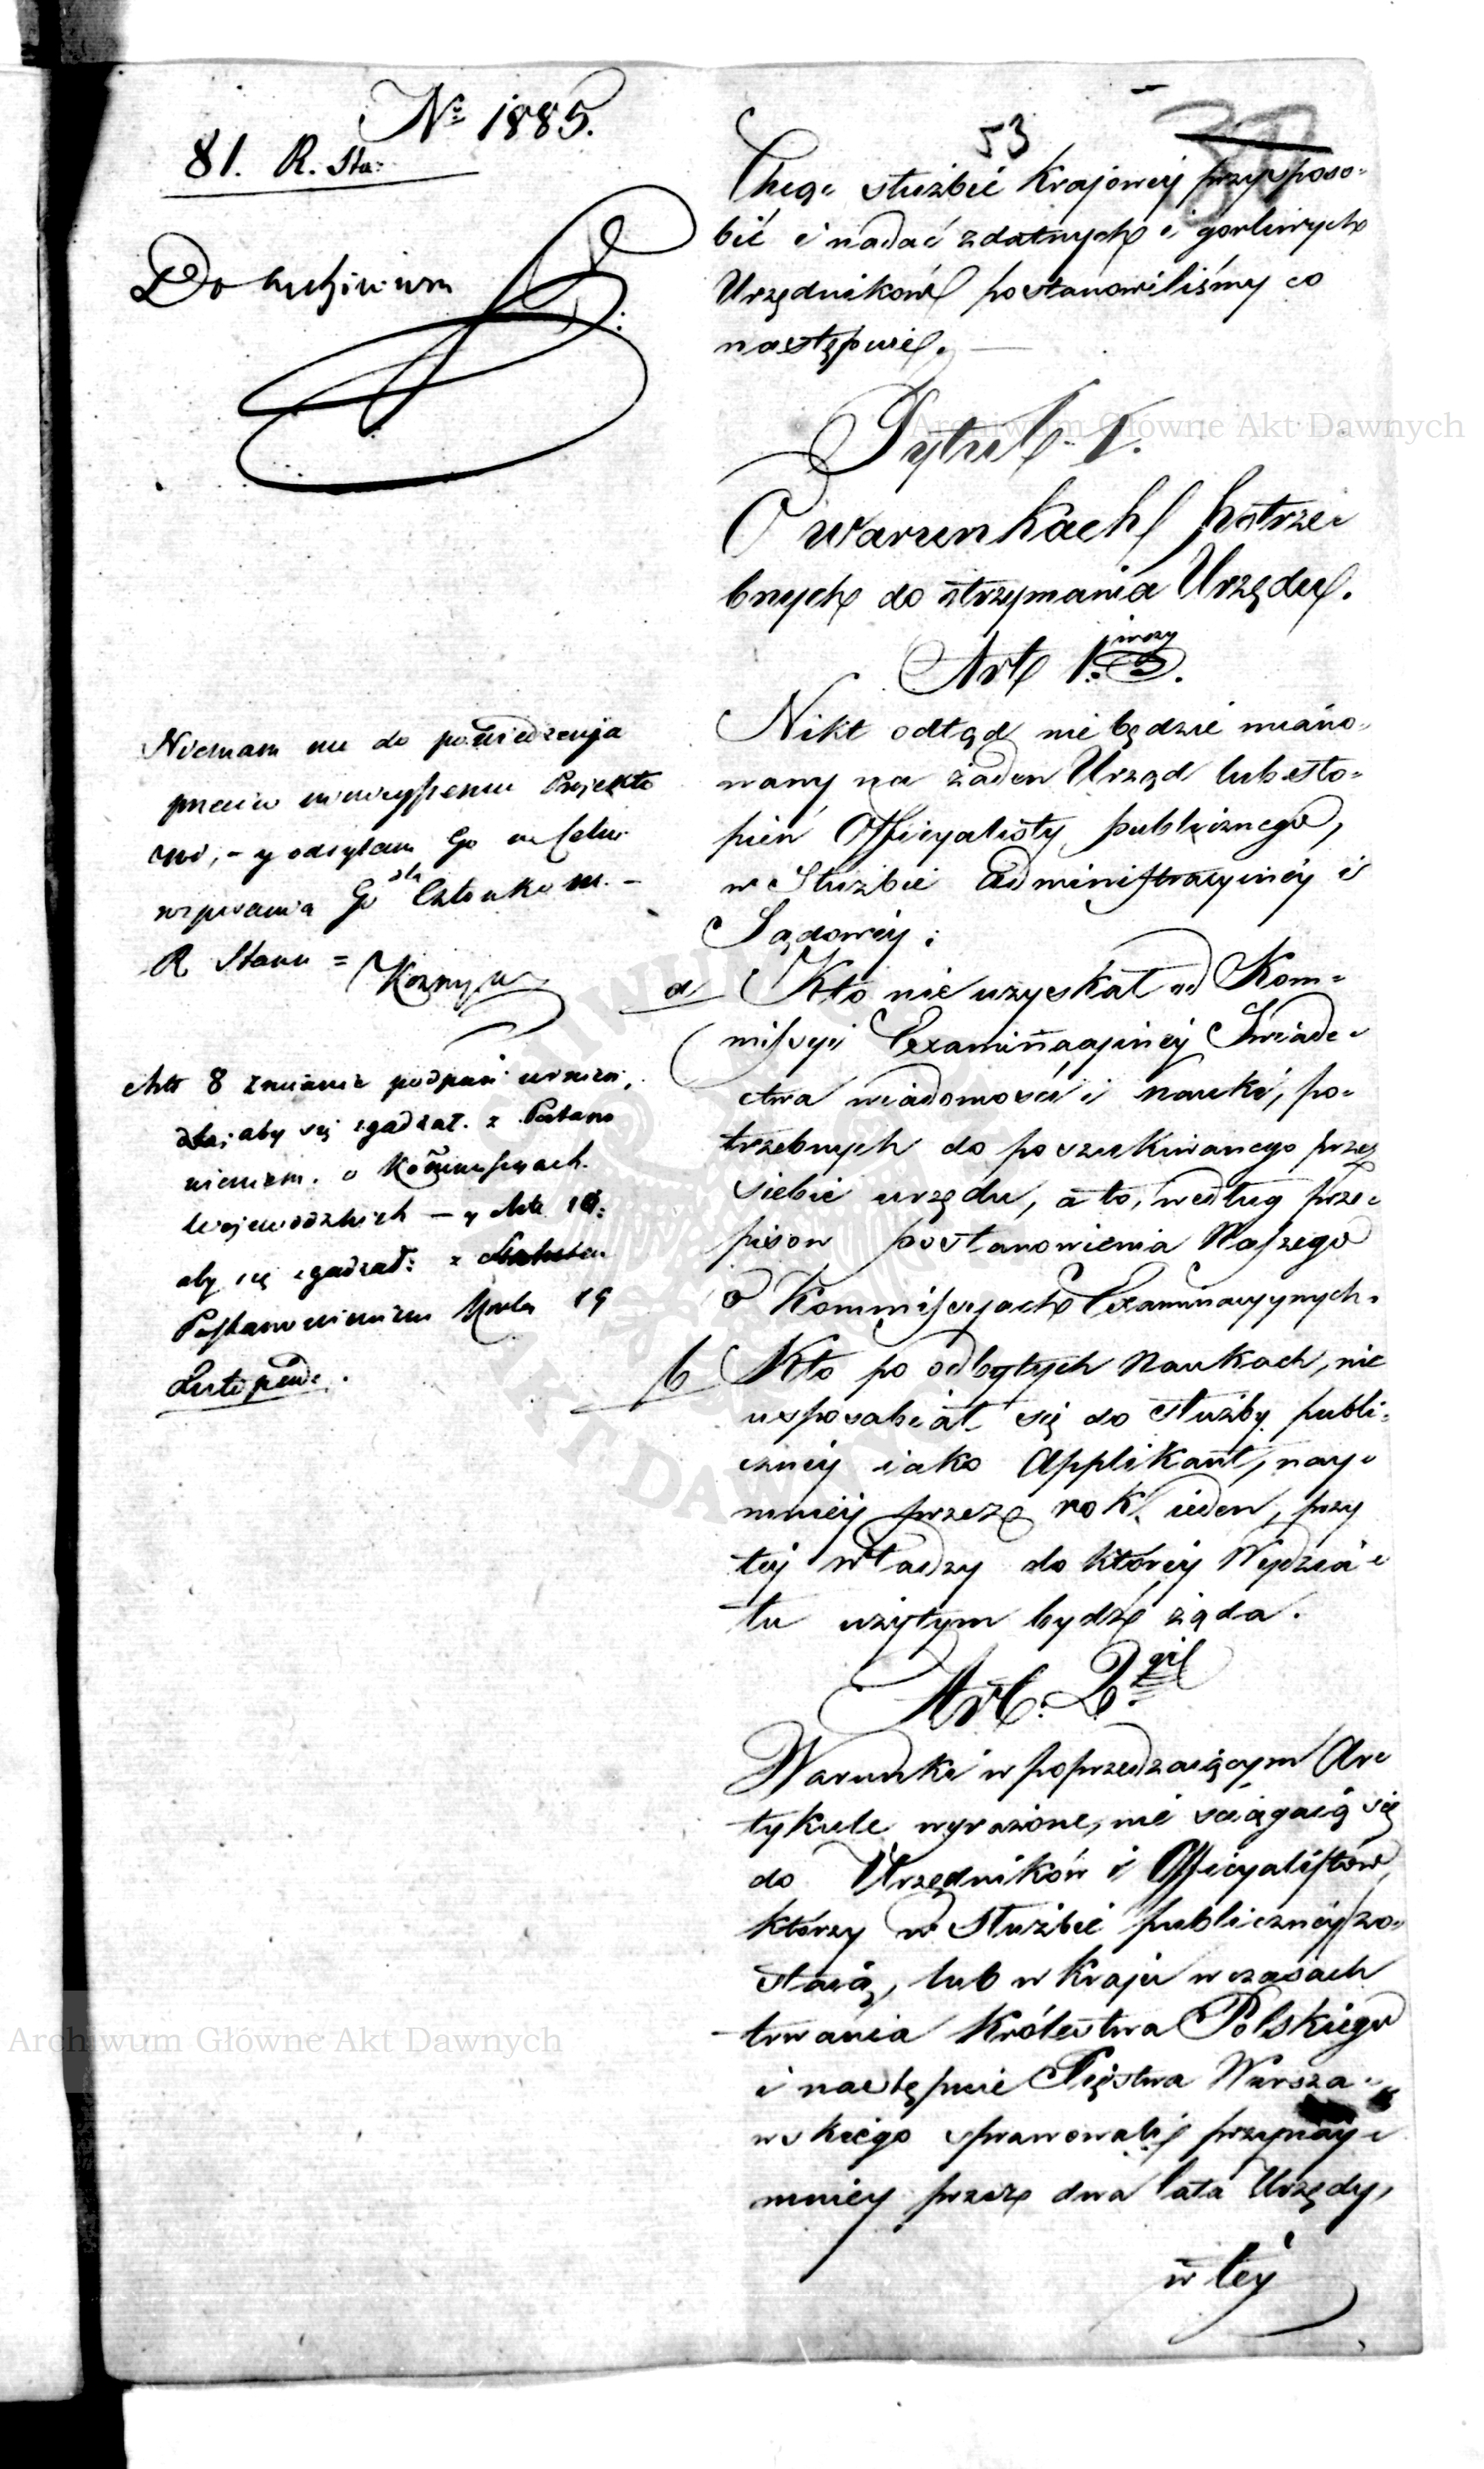 Nº 1885.
81. R. Sta:
Do Archiwum
Niemam nic do powiedzenia
przeciw ninieyszemu Projekto
wi, - y odsyłam Go w Celu
wzpisania Go dla Członków. -
R Stanu =
Art 8 zmianie podpaść winien,
aby się zgadzał. z Postano
wieniem. o Kommissyach.
Woiewodzkich - y Art 10:
aby się zgadzał: z
Postanowieniem 19
53
Chcąc służbie Krajowey przysposo-
bić i nadać zdatnych i gorliwych
Urzędników postanowiliśmy co
następuie. —
Tytuł I.
O warunkach potrze-
bnych do otrzymania Urzędu.
Art 1.wszy
Nikt odtąd nie będzie miano-
wany na żaden Urząd lub sto-
pień Officyalisty publicznego,
w Służbie Administracyiney i
Sądowey:
a Kto nie uzyskał od Kom-
missyi Examinacyiney Świade-
ctwa wiadomości i nauki, po-
trzebnych do poszukiwanego przez
siebie urzędu, a to, według prze-
pisow postanowienia Naszego
o Kommissyach Examinacyynych.
b Kto po odbytych Naukach, nie
usposabiał się do służby publi-
czney iako Applikant, nay-
mniey przez rok ieden, przy
tey władzy do którey Wydzia-
łu użytym bydź żąda.
Art. 2.gi
Warunki w poprzedzaiącym Ar-
tykule wyrażone, nie ściągaią się
do Urzędników i Officyalistów,
którzy w Służbie publiczney zo-
staią, lub w Kraju w czasach
trwania Królestwa Polskiego
i następnie Xięstwa Warsza-
wskiego sprawowali przynay-
mniey przez dwa lata Urzędy,
w tey
Archiwum Główne Akt Dawnych
Archiwum Główne Akt Dawnych